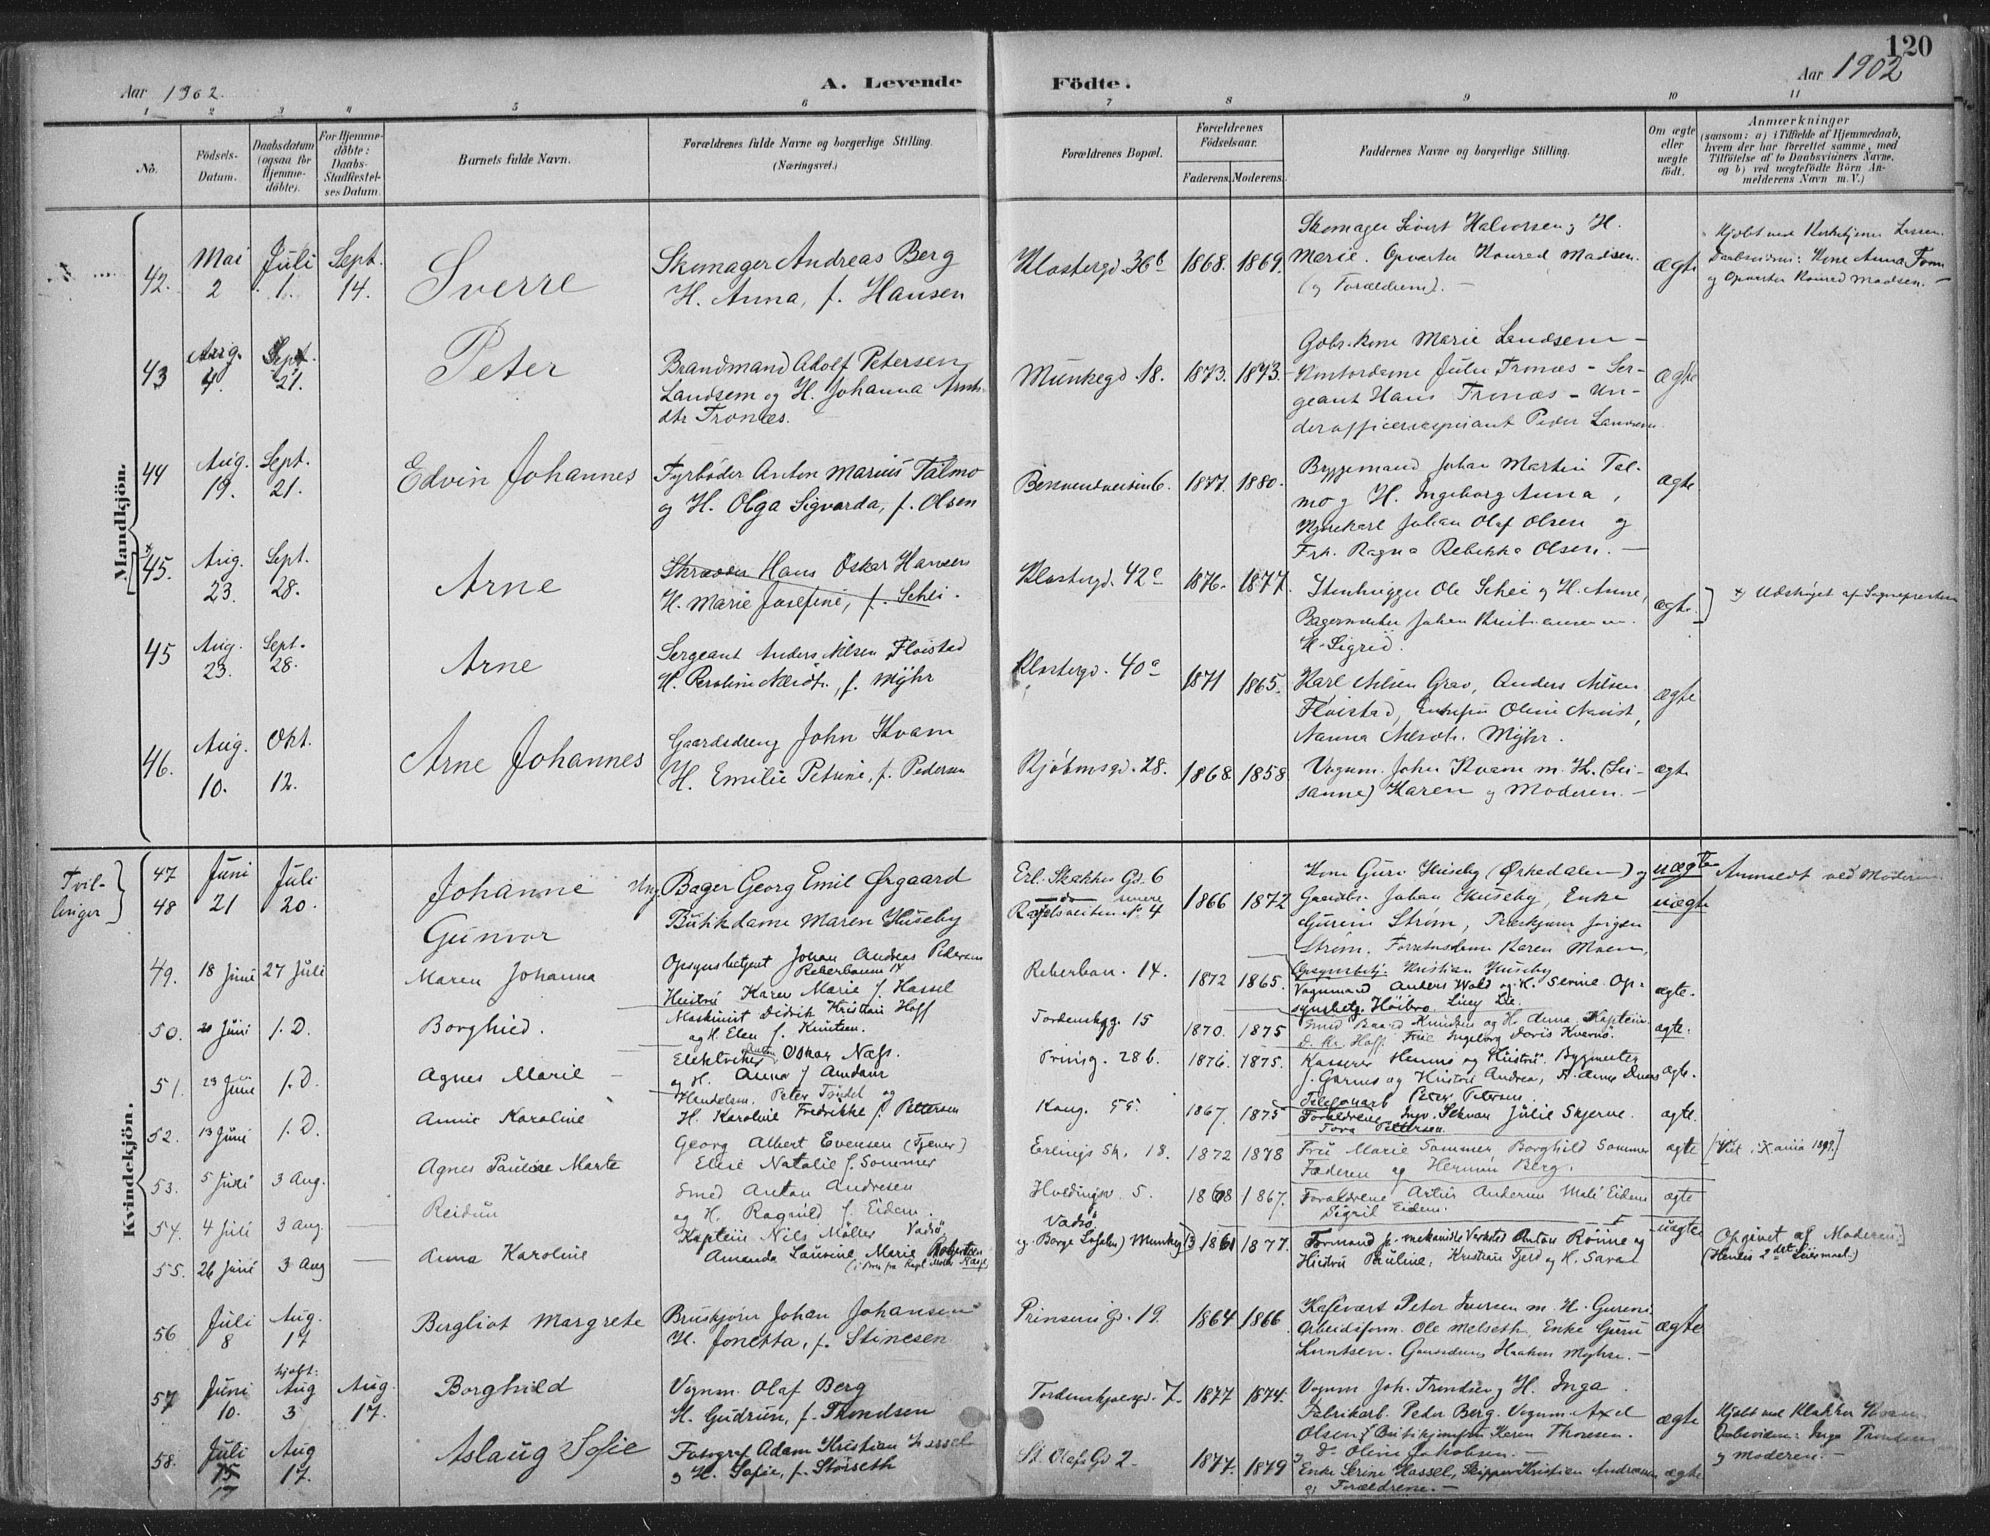 120
Aar 1902.
A. Levende Födte.
Aar 1902
1 2 3 4 5 6 7 8 9 10 11
No.
Födsels-Datum.
Daabsdatum (ogsaa for Hjemmedöbte).
For Hjemmedöbte: Daabs-Stadfæstelses Datum.
Barnets fulde Navn.
Forældrenes fulde Navne og borgerlige Stilling. (Næringsvei.)
Forældrenes Bopæl.
Forældrenes Födselsaar.
Faderens. Moderens.
Faddernes Navne og borgerlige Stilling.
Om ægte eller uægte födt.
Anmærkninger
(saasom: a) i Tilfælde af Hjemmedaab,
hvem der har forrettet samme, med
Tilföielse af to Daabsvidners Navne,
og b) ved uægtefödte Börn An-
melderens Navn m. V.)
Mandkjön.
42. Mai 2 Juli 1. Sept. 14. Sverre
Skomager Andreas Berg
H. Anna, f. Hansen
Klostergd. 36b 1868. 1869.
Skomager Sivert Halvorsen og H.
Marie. Opvarter Konrad Madsen.
(og Forældrene). -
ægte
Daabsvidner: Kone Anna
og Opvarter Konrad Madsen. -
43 Aug. 4. Sept. 21. Peter
Brandmand Adolf Petersen
Landsem og H. Johanna
dtr Trønæs.
Munkegd. 18. 1873. 1873.
Gbr. kone Marie Landsem -
Trønæs - Ser-
geant Hans Trønæs - Un-
derofficersaspirant Peder Landsem
ægte
44 Aug. 19. Sept. 21. Edvin Johannes
Fyrbøder Anton Marius Talmo
og H. Olga Sigvarda, f. Olsen
6. 1877. 1880.
Byggemand Johan Martin Tal-
mo og H. Ingeborg Anna,
Johan Olaf Olsen og
Frk. Ragna Rebekka Olsen. -
ægte
45. Aug. 23. Sept. 28. Arne
Skrædder Hans Oskar Hansen
H. Marie Josefine, f. Schei.
Klostergd. 42c 1876. 1877.
Stenhugger Ole Schei og H. Anne,
Bagermester Johan
H. Sigrid.
ægte.
x) Udstrøget af Sognepresten
45 Aug. 23. Sept. 28. Arne
Sergeant Anders Nilsen Fløistad
H. f. Myhr
Klostergd. 40a 1871 1865.
Karl Nilsen Grav, Anders Nilsen
Fløistad, Oline
Nanna Myhr.
ægte
46. Aug. 10. Okt. 12. Arne Johannes
Gaardsdreng John Kvam
H. Emilie Petrine, f. Pedersen
Kjøbmgd. 28. 1868. 1858
Vognm. John Kvam m. H. (Su-
sanne) Karen og Moderen. -
ægte
Kvindekjön.
Tvil-
linger
47 48 Juni 21 Juli 20. Johanne
Gunvor
Ung. Bager Georg Emil Ørgaard
Butikdame Maren Huseby
Erl. Skakkes Gd. 6
4
1866 1872
Kone Guri Huseby (Orkedalen) og
Johan Huseby, Enke
Gurine Strøm, Jørgen
Strøm. Karen Moen,
Kristian Huseby
uægte
uægte
Anmeldt ved Moderen
49. 18 Juni 27 Juli Maren Johanna
Opsynsbetjent Johan Andreas Pedersen
Reberbanen 14
Hustru Karen Marie f. Hassel
Reberban. 14. 1872 1865.
Vognmand Anders Wold og H. Serine. Op-
synsbetj. Høibro.
ægte.
50. 20 Juni 1. D. Borghild.
Maskinist Didrik Kristian Hoff
og H. Elen f. Knutsen.
Tordenskg. 15 1870. 1875
Smed Baard Knudsen og H. Anna, Kaptein
D. Kr. Hoff. Frk Ingeborg Doris Kvernø.
ægte.
51. 23 Juni 1. D. Agnes Marie
Elektriker Anton Oskar Næss.
og H. Anna f Amdam
Prinsg. 28 b. 1876. 1875.
Kasserer og Hustru. Bygmester
J. Garnes og Hustru Andrea,
Peter Petersen.
ægte.
52. 13 Juni 1. D. Annie Karoline
Handelsm. Peter Trødel og
H. Karoline Fredrikke f Pettersen
Kong. 55. 1867. 1875
Forældrene Julie Skjerve.
Tora Pettersen
ægte.
53. 5 Juni 3 Aug. Agnes Pauline Marte
Georg Albert Evensen (Tjener)
Elise Natalie f. Sommer
Erlings Sk. 18. 1872 1878
Fru Marie Sommer, Borghild Sommer
Faderen og Herman Berg.
ægte
[Viet i Kania 1899.]
54. 4 Juli 3 Aug. Reidun
Smed Anton Andresen
og H. Ragnild f. Eidem.
5. 1868 1867.
Forældrene Andersen Eidem
Sigril Eidem.
ægte
55. 26 Juni 3 Aug Anna Karoline
Kaptein Nils Møller Vadsø
Amanda Laurine Marie Robertsen
Vadsø
Munkeg 1861 1877.
Formand p. mekaniske Verksted Anton Rønne og
Hustru Pauline, Kristian Tjerd og H. Sara
uægte
Opgivet af Moderen.
(Hendes 2det Leiermaal.)
56 Juli 8 Aug. 17 Bergliot Margrete
Johan Johansen
H. Jonetta, f. Stinesen
Prinsens Gd. 19. 1864 1866
Kafévært Peter Iversen m. H. Gurine
Arbeidsform. Ole Melseth, Enke Guru
Haakon Myhre. -
ægte
57 Juni 10. hjdøbt. Aug 3 Aug. 17. Borghild
Vognm. Olaf Berg
H. Gudrun, f. Trondsen
7. 1877 1874.
Vognm. Joh. Trondsen og H. Inga.
Fabrikarb. Peder Berg. Vognm. Axel
Olsen, Karen Thoresen.
og D. Oline Jakobsen. -
ægte
Hjdøbt ved Klokker Kvam
Inga Trondsen
og Moderen. -
58. Juli 15 Aug 17. Aslaug Sofie
Fotograf Adam Kristian Hassel
og H. Sofie, f. Størseth
St. Olafs Gd 2 1877. 1879
Enke Serine Hassel, Skipper Kristian Andresen
og Forældrene. -
ægte